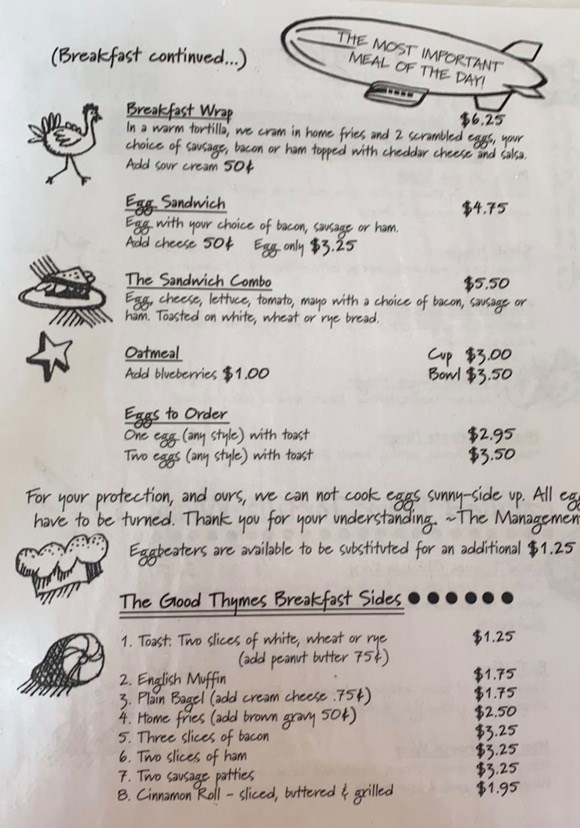 (Breakfast continued...)
THE MOST IMPORTANT
MEAL OF THE DAY!
Breakfast Wrap $6.25
In a warm tortilla, we cram in home fries and 2 scrambled eggs, your
choice of sausage, bacon or ham topped with cheddar cheese and salsa.
Add sour cream 50¢
Egg Sandwich $4.75
Egg with your choice of bacon, sausage or ham.
Add cheese 50¢ Egg only $3.25
The Sandwich Combo $5.50
Egg, cheese, lettuce, tomato, mayo with a choice of bacon, sausage or
ham. Toasted on white, wheat or rye bread.
Oatmeal Cup $3.00
Add blueberries $1.00 Bowl $3.50
Eggs to Order
One egg (any style) with toast $2.95
Two eggs (any style) with toast $3.50
For your protection, and ours, we can not cook eggs sunny-side up. All eg
have to be turned. Thank you for your understanding. ~The Managemen
Eggbeaters are available to be substituted for an additional $1.25
The Good Thymes Breakfast Sides ● ● ● ● ● ●
1. Toast: Two slices of white, wheat or rye $1.25
(add peanut butter 75¢)
2. English Muffin $1.75
3. Plain Bagel (add cream cheese .75¢) $1.75
4. Home fries (add brown gravy 50¢) $2.50
5. Three slices of bacon $3.25
6. Two slices of ham $3.25
7. Two sausage patties $3.25
8. Cinnamon Roll - sliced, buttered & grilled $1.95